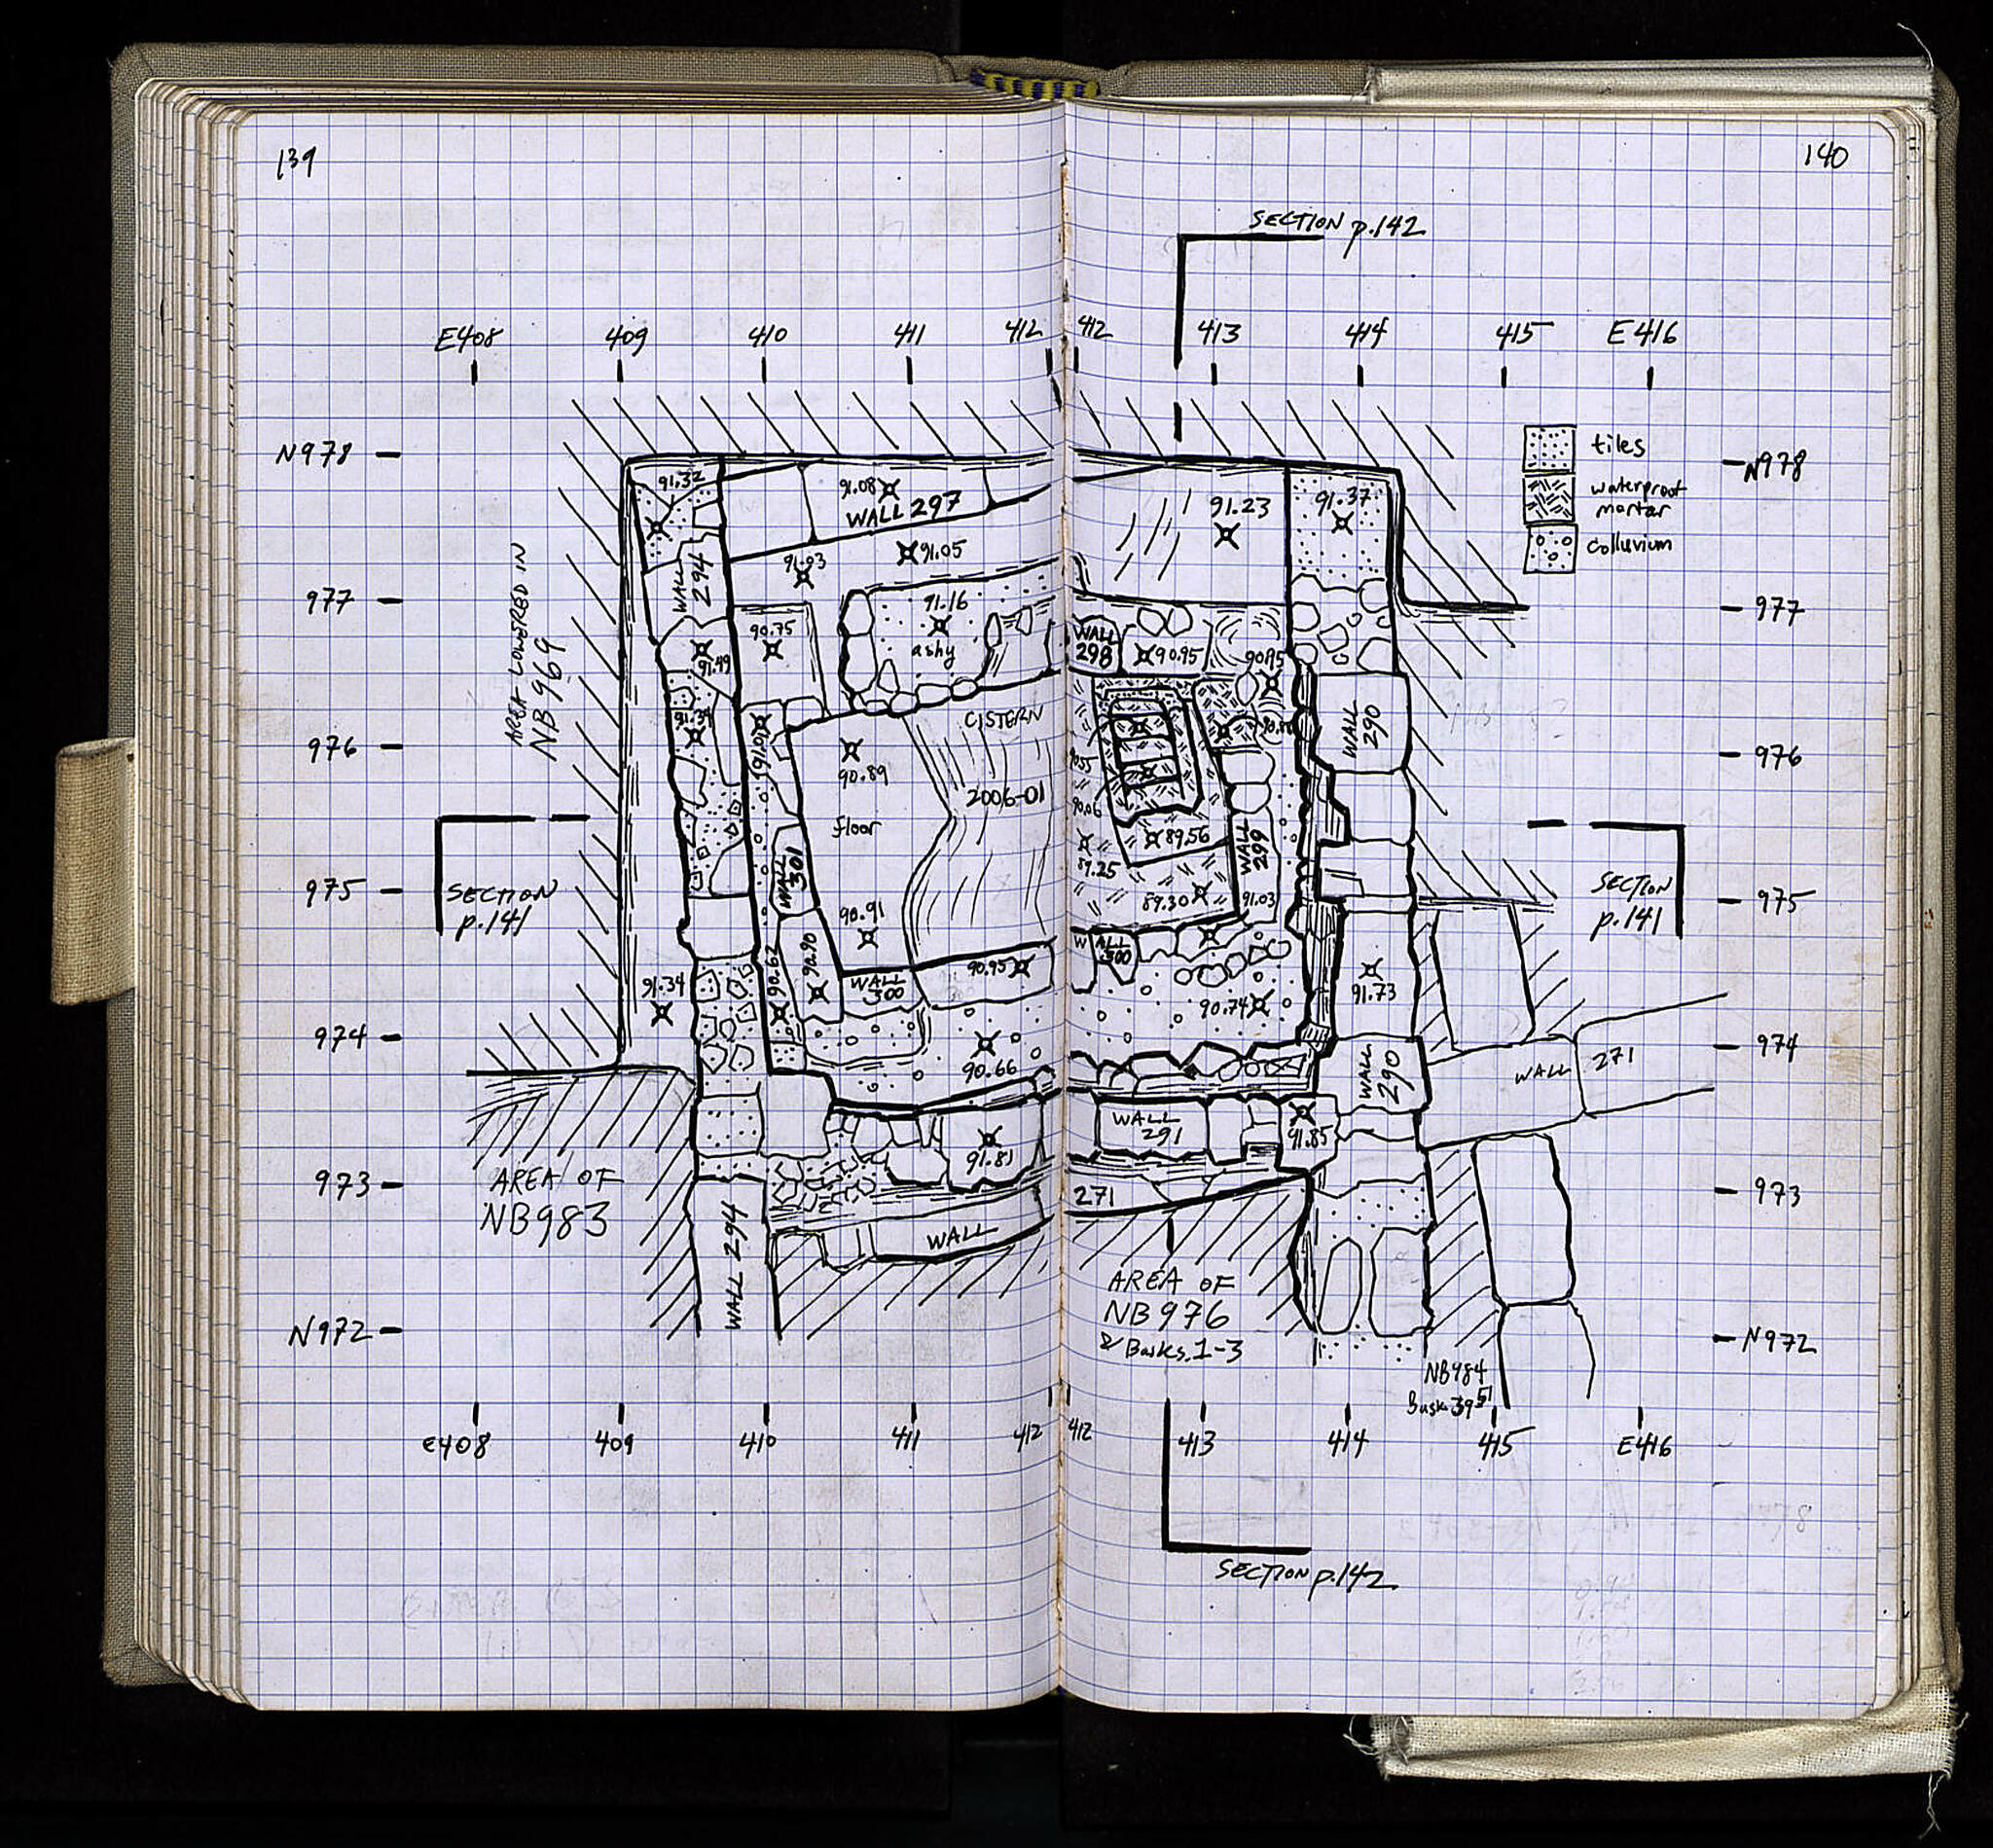 139
E408 409 410 411 412
N978
977
976
975
974
973
N972
AREA LOWERED IN
NB 969
91.32
91.08
WALL 297
91.05
91.03
WALL
294
91.16
ashy
90.75
91.49
91.34
91.07
CISTERN
90.89
2006-01
floor
WALL
301
SECTION
p.141
90.91
90.90
90.62
90.95
WALL
300
91.34
90.66
91.81
AREA OF
NB983
WALL 294
WALL
E408 409 410 411 412
140
SECTION p.142
412 413 414 415 E416
tiles
waterproof
mortar
colluvium
N978
977
976
975
974
973
N972
91.23
91.37
WALL
298
90.95
90.95
WALL
290
89.56
WALL
299
89.25
89.30
91.03
SECTION
p.141
WALL
300
90.74
91.73
WALL
290
WALL 271
WALL
291
91.85
271
AREA OF
NB976
& Basks. 1-3
NB984
412 413 414 415 E416
SECTION p.142